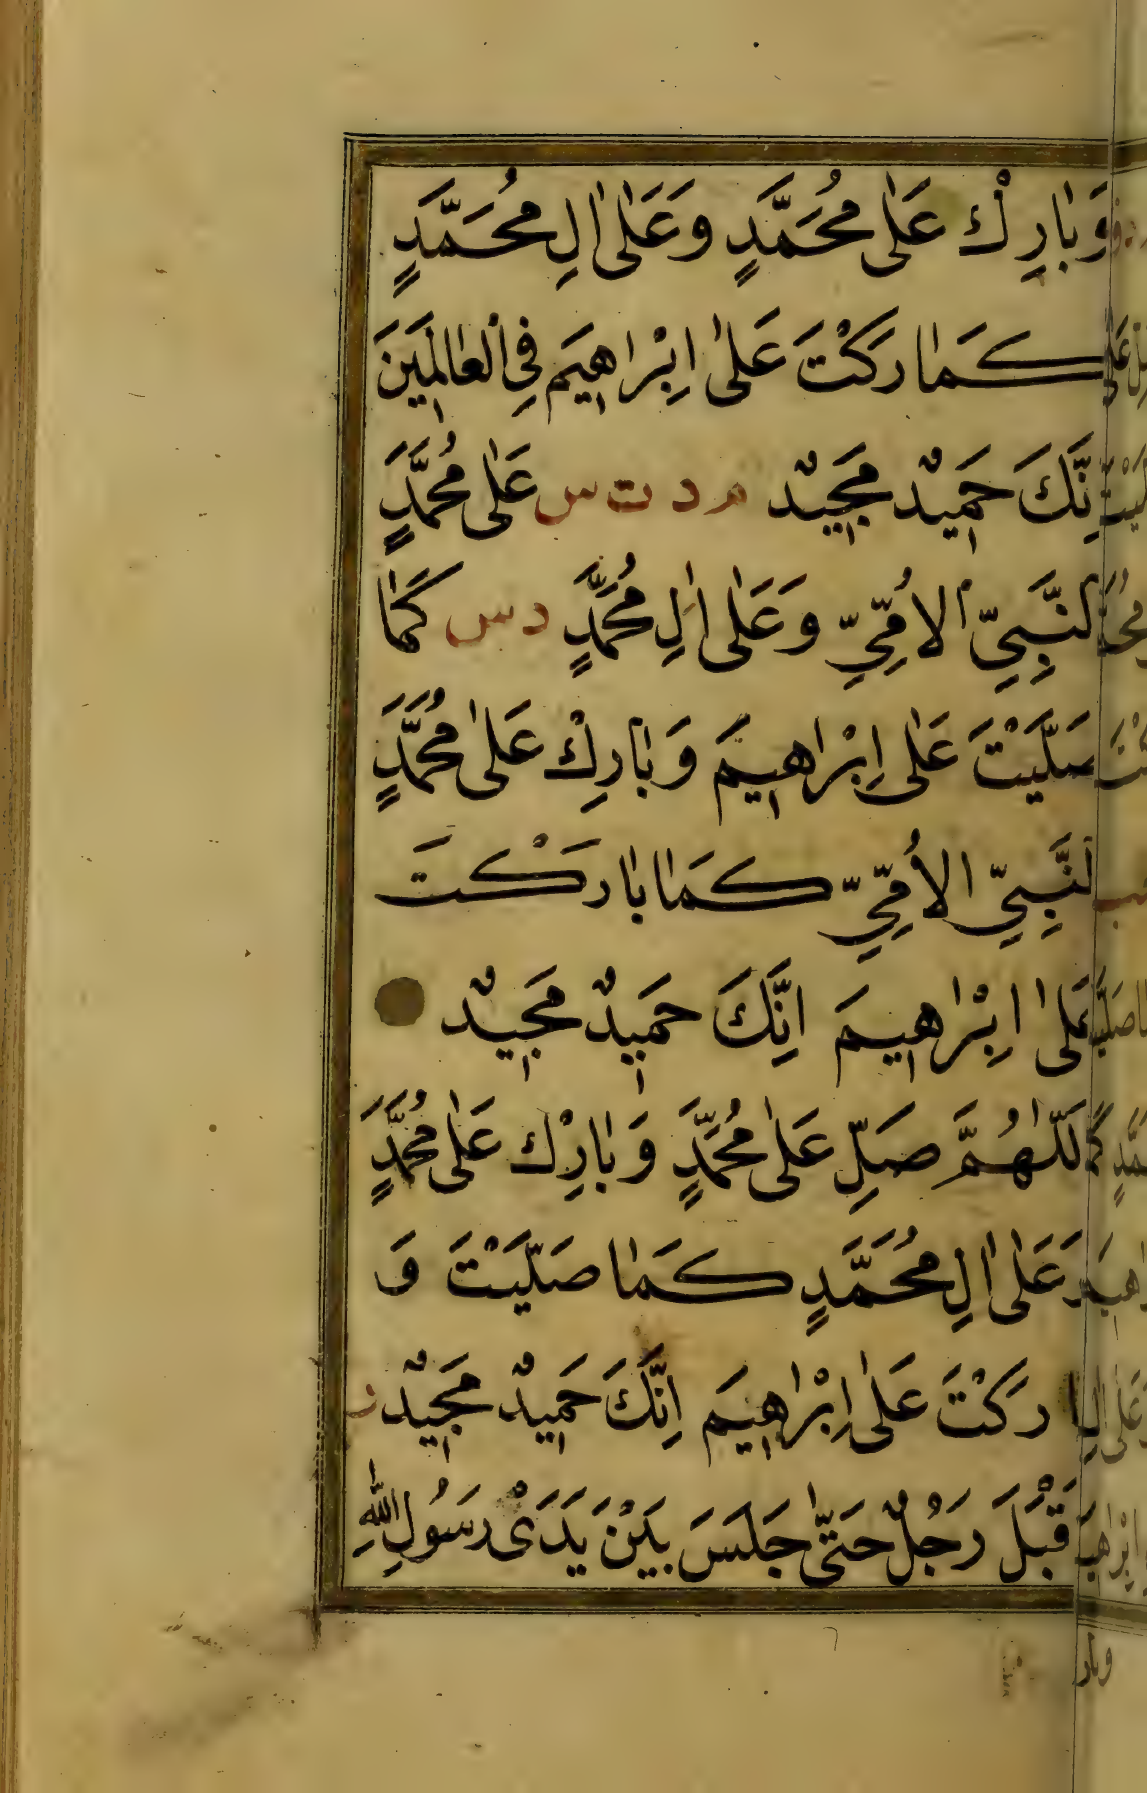 وَبٰارِكْ عَلٰى مُحَمَّدٍ وَعَلٰى اٰلِ مُحَمَّدٍ
كَمٰا رَكْتَ عَلٰى اِبْرٰاهِيمَ فِى الْعٰالَمِينَ
نَّكَ حَمِيدٌ مَجِيدٌ م د ت س عَلٰى مُحَمَّدٍ
لنَّبِيِّ الْاُمِّيِّ وَعَلٰى اٰلِ مُحَمَّدٍ د س كَمٰا
صَلَّيْتَ عَلٰى اِبْرٰاهِيمَ وَبٰارِكْ عَلٰى مُحَمَّدٍ
لنَّبِيِّ الْاُمِّيِّ كَمٰا بٰارَكْتَ
عَلٰى اِبْرٰاهِيمَ اِنَّكَ حَمِيدٌ مَجِيدٌ
للّٰهُمَّ صَلِّ عَلٰى مُحَمَّدٍ وَبٰارِكْ عَلٰى مُحَمَّدٍ
وَعَلٰى اٰلِ مُحَمَّدٍ كَمٰا صَلَّيْتَ وَ
رَكْتَ عَلٰى اِبْرٰاهِيمَ اِنَّكَ حَمِيدٌ مَجِيدٌ ر
قْبَلَ رَجُلٌ حَتّٰى جَلَسَ بَيْنَ يَدَىْ رَسُولِ اللّٰهِ
وبار